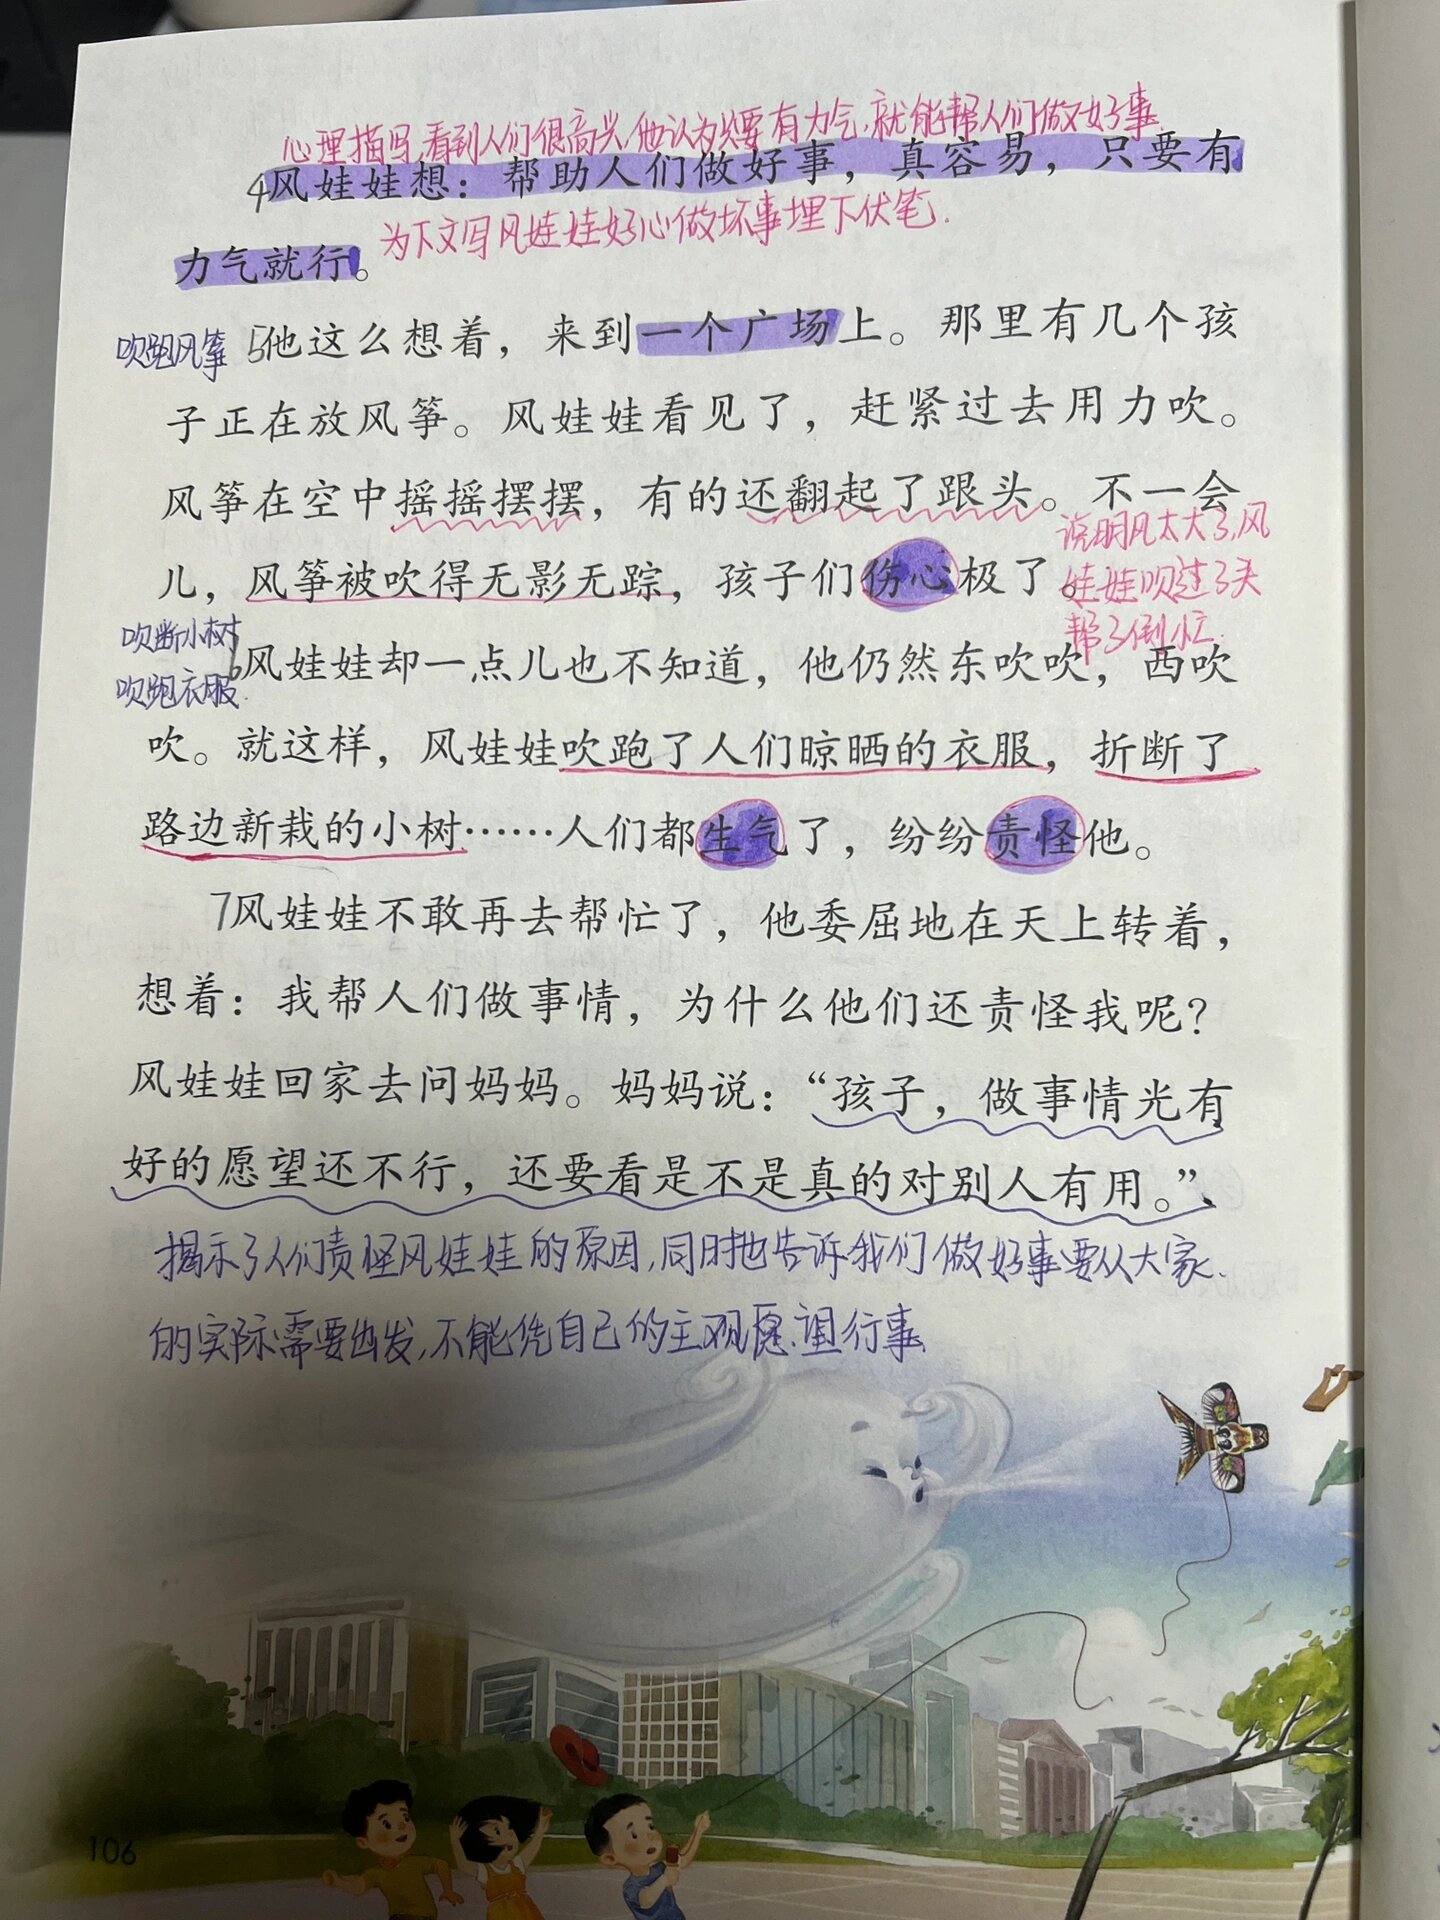 心理描写,看到人们很高兴,他认为只要有力气,就能帮人们做好事
4风娃娃想：帮助人们做好事，真容易，只要有
为下文写风娃娃好心做坏事埋下伏笔.
力气就行。
吹跑风筝
5他这么想着，来到一个广场上。那里有几个孩
子正在放风筝。风娃娃看见了，赶紧过去用力吹。
风筝在空中摇摇摆摆，有的还翻起了跟头。不一会
儿，风筝被吹得无影无踪，孩子们伤心极了。
说明风太大了,风
娃娃吹过了头
帮了倒忙.
吹断小树
吹跑衣服.
6风娃娃却一点儿也不知道，他仍然东吹吹，西吹
吹。就这样，风娃娃吹跑了人们晾晒的衣服，折断了
路边新栽的小树……人们都生气了，纷纷责怪他。
7风娃娃不敢再去帮忙了，他委屈地在天上转着，
想着：我帮人们做事情，为什么他们还责怪我呢？
风娃娃回家去问妈妈。妈妈说：“孩子，做事情光有
好的愿望还不行，还要看是不是真的对别人有用。”
揭示了人们责怪风娃娃的原因,同时也告诉我们做好事要从大家
的实际需要出发,不能凭自己的主观愿望行事
106